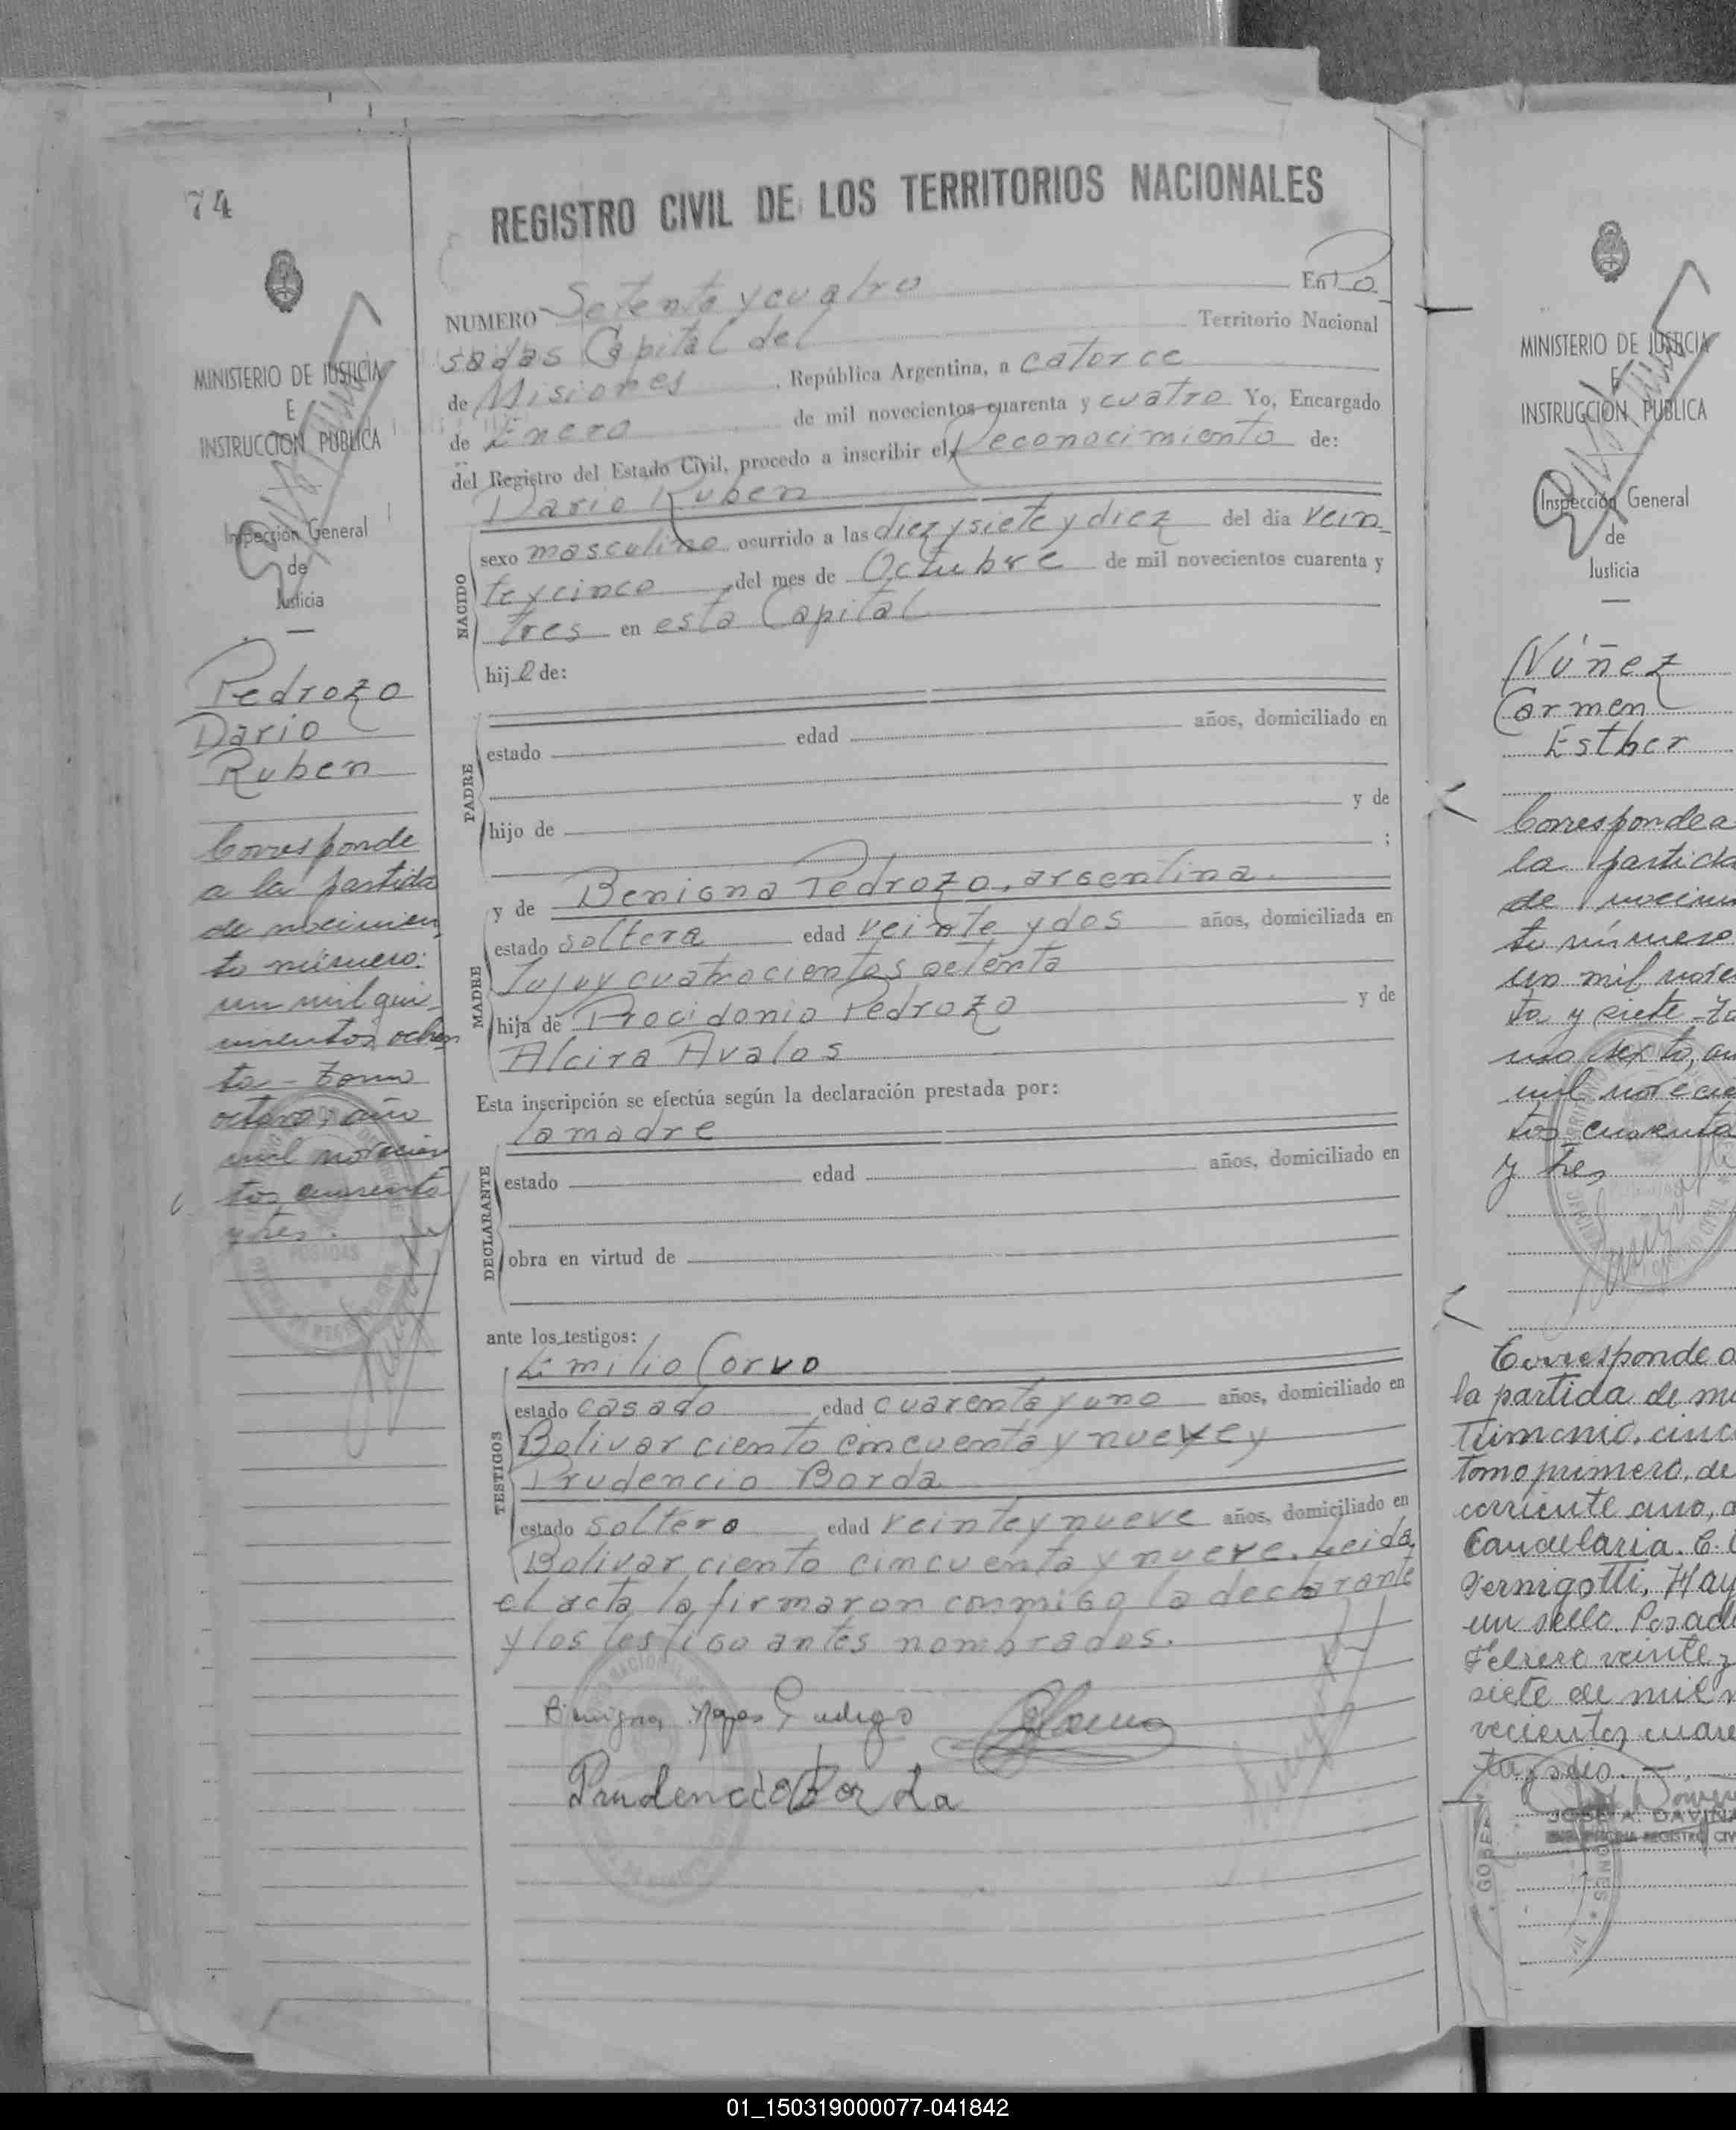 74
REGISTRO CIVIL DE LOS TERRITORIOS NACIONALES
MINISTERIO DE JUSTICIA
E
INSTRUCCION PUBLICA
Inspección General
de
Justicia
Pedrozo
Dario
Ruben
Corresponde
a la partida
de nacimien
to número:
un mil qui-
nientos ochen
ta - Tomo
octavo, año
mil novecien
tos cuarenta
y tres.
NUMERO Setenta y cuatro En Po
sadas Capital del Territorio Nacional
de Misiones, República Argentina, a catorce
de Enero de mil novecientos cuarenta y cuatro Yo, Encargado
del Registro del Estado Civil, procedo a inscribir el Reconocimiento de:
Dario Ruben
NACIDO
sexo masculino ocurrido a las diez y siete y diez del día vein
te y cinco del mes de Octubre de mil novecientos cuarenta y
tres en esta Capital
hij de:
PADRE
estado edad años, domiciliado en
hijo de y de
;
y de Benigna Pedrozo, argentina.
MADRE
estado soltera edad veinte y dos años, domiciliada en
Jujuy cuatrocientos setenta
hija de Procidonio Pedrozo y de
Alcira Avalos
Esta inscripción se efectúa según la declaración prestada por:
la madre
DECLARANTE
estado edad años, domiciliado en
obra en virtud de
ante los testigos:
Emilio Corvo
TESTIGOS
estado casado edad cuarenta y uno años, domiciliado en
Bolivar ciento cincuenta y nueve y
Prudencio Borda
estado soltero edad veinte y nueve años, domiciliado en
Bolivar ciento cincuenta y nueve. Leida
el acta la firmaron conmigo la declarante
y los testigo antes nombrados.
Benigna
Prudencio Borda
MINISTERIO DE JUSTICIA
E
INSTRUCCION PUBLICA
Inspección General
de
Justicia
Núñez
Carmen
Esther
Corresponde a
la partida
de nacim
to número
un mil nove
ta y siete - To
mo sexto, añ
mil novecie
tos cuarenta
y tres
Corresponde a
la partida de ma
trimonio, cinc
tomo primero, de
corriente ano, d
Candelaria. C.
Pernigotti. Hay
un sello. Posad
Febrero veinte y
siete de mil n
vecientos cuare
ta y seis.
JOSE A. DAVIÑA
01_150319000077-041842